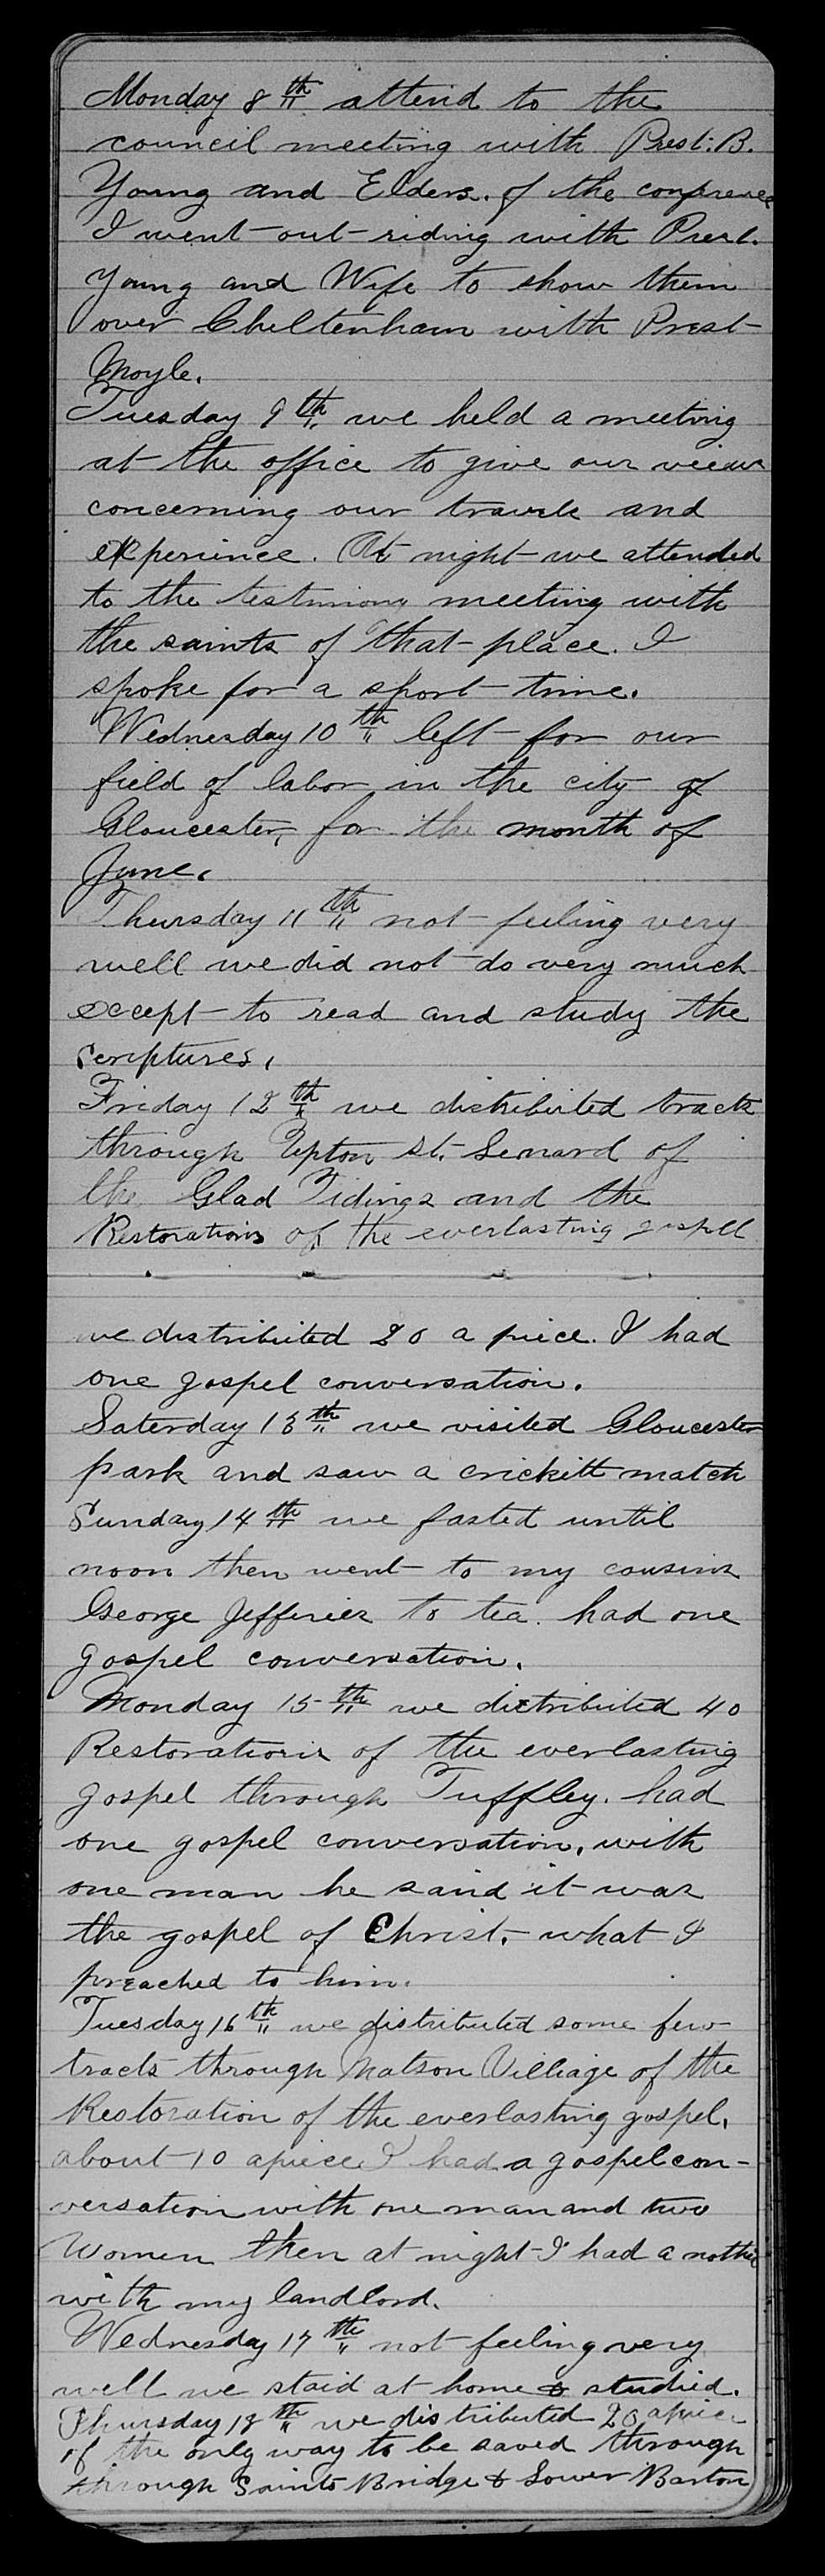 Monday 8th attend to the
council meeting with Prest. B.
Young and Elders. of the conference
I went out riding with Prest.
Young and Wife to show them
over Cheltenham with Prest
Moyle.
Tuesday 9th we held a meeting
at the office to give our veiws
concerning our travels and
experience. At night we attended
to the testimony meeting with
the saints of that place. I
spoke for a short time.
Wednesday 10th left for our
field of labor in the city of
Gloucester, for the month of
June.
Thursday 11th not feeling very
well we did not do very much
except to read and study the
scriptures.
Friday 12th we distributed tracts
through Upton St. Lenard of
the Glad Tidings and the
Restorations of the everlasting gospel
we distributed 20 a piece. I had
one gospel conversation.
Saterday 13th we visited Gloucester
park and saw a crickitt match
Sunday 14th we fasted until
noon then went to my cousins
George Jefferies to tea. had one
gospel conversation.
Monday 15th we distributed 40
Restorations of the everlasting
gospel through Tuffley. had
one gospel conversation, with
one man he said it was
the gospel of Christ, what I
preached to him.
Tuesday 16th we distributed some few
tracts through Matson Villiage of the
Restoration of the everlasting gospel,
about 10 apiece I had a gospel con-
versation with one man and two
Women then at night I had a nother
with my landlord.
Wednesday 17th not feeling very
well we staid at home & studied.
Thursday 18th we distributed 20 apiece
of the only way to be saved through
through Saints Bridge & Lower Barton